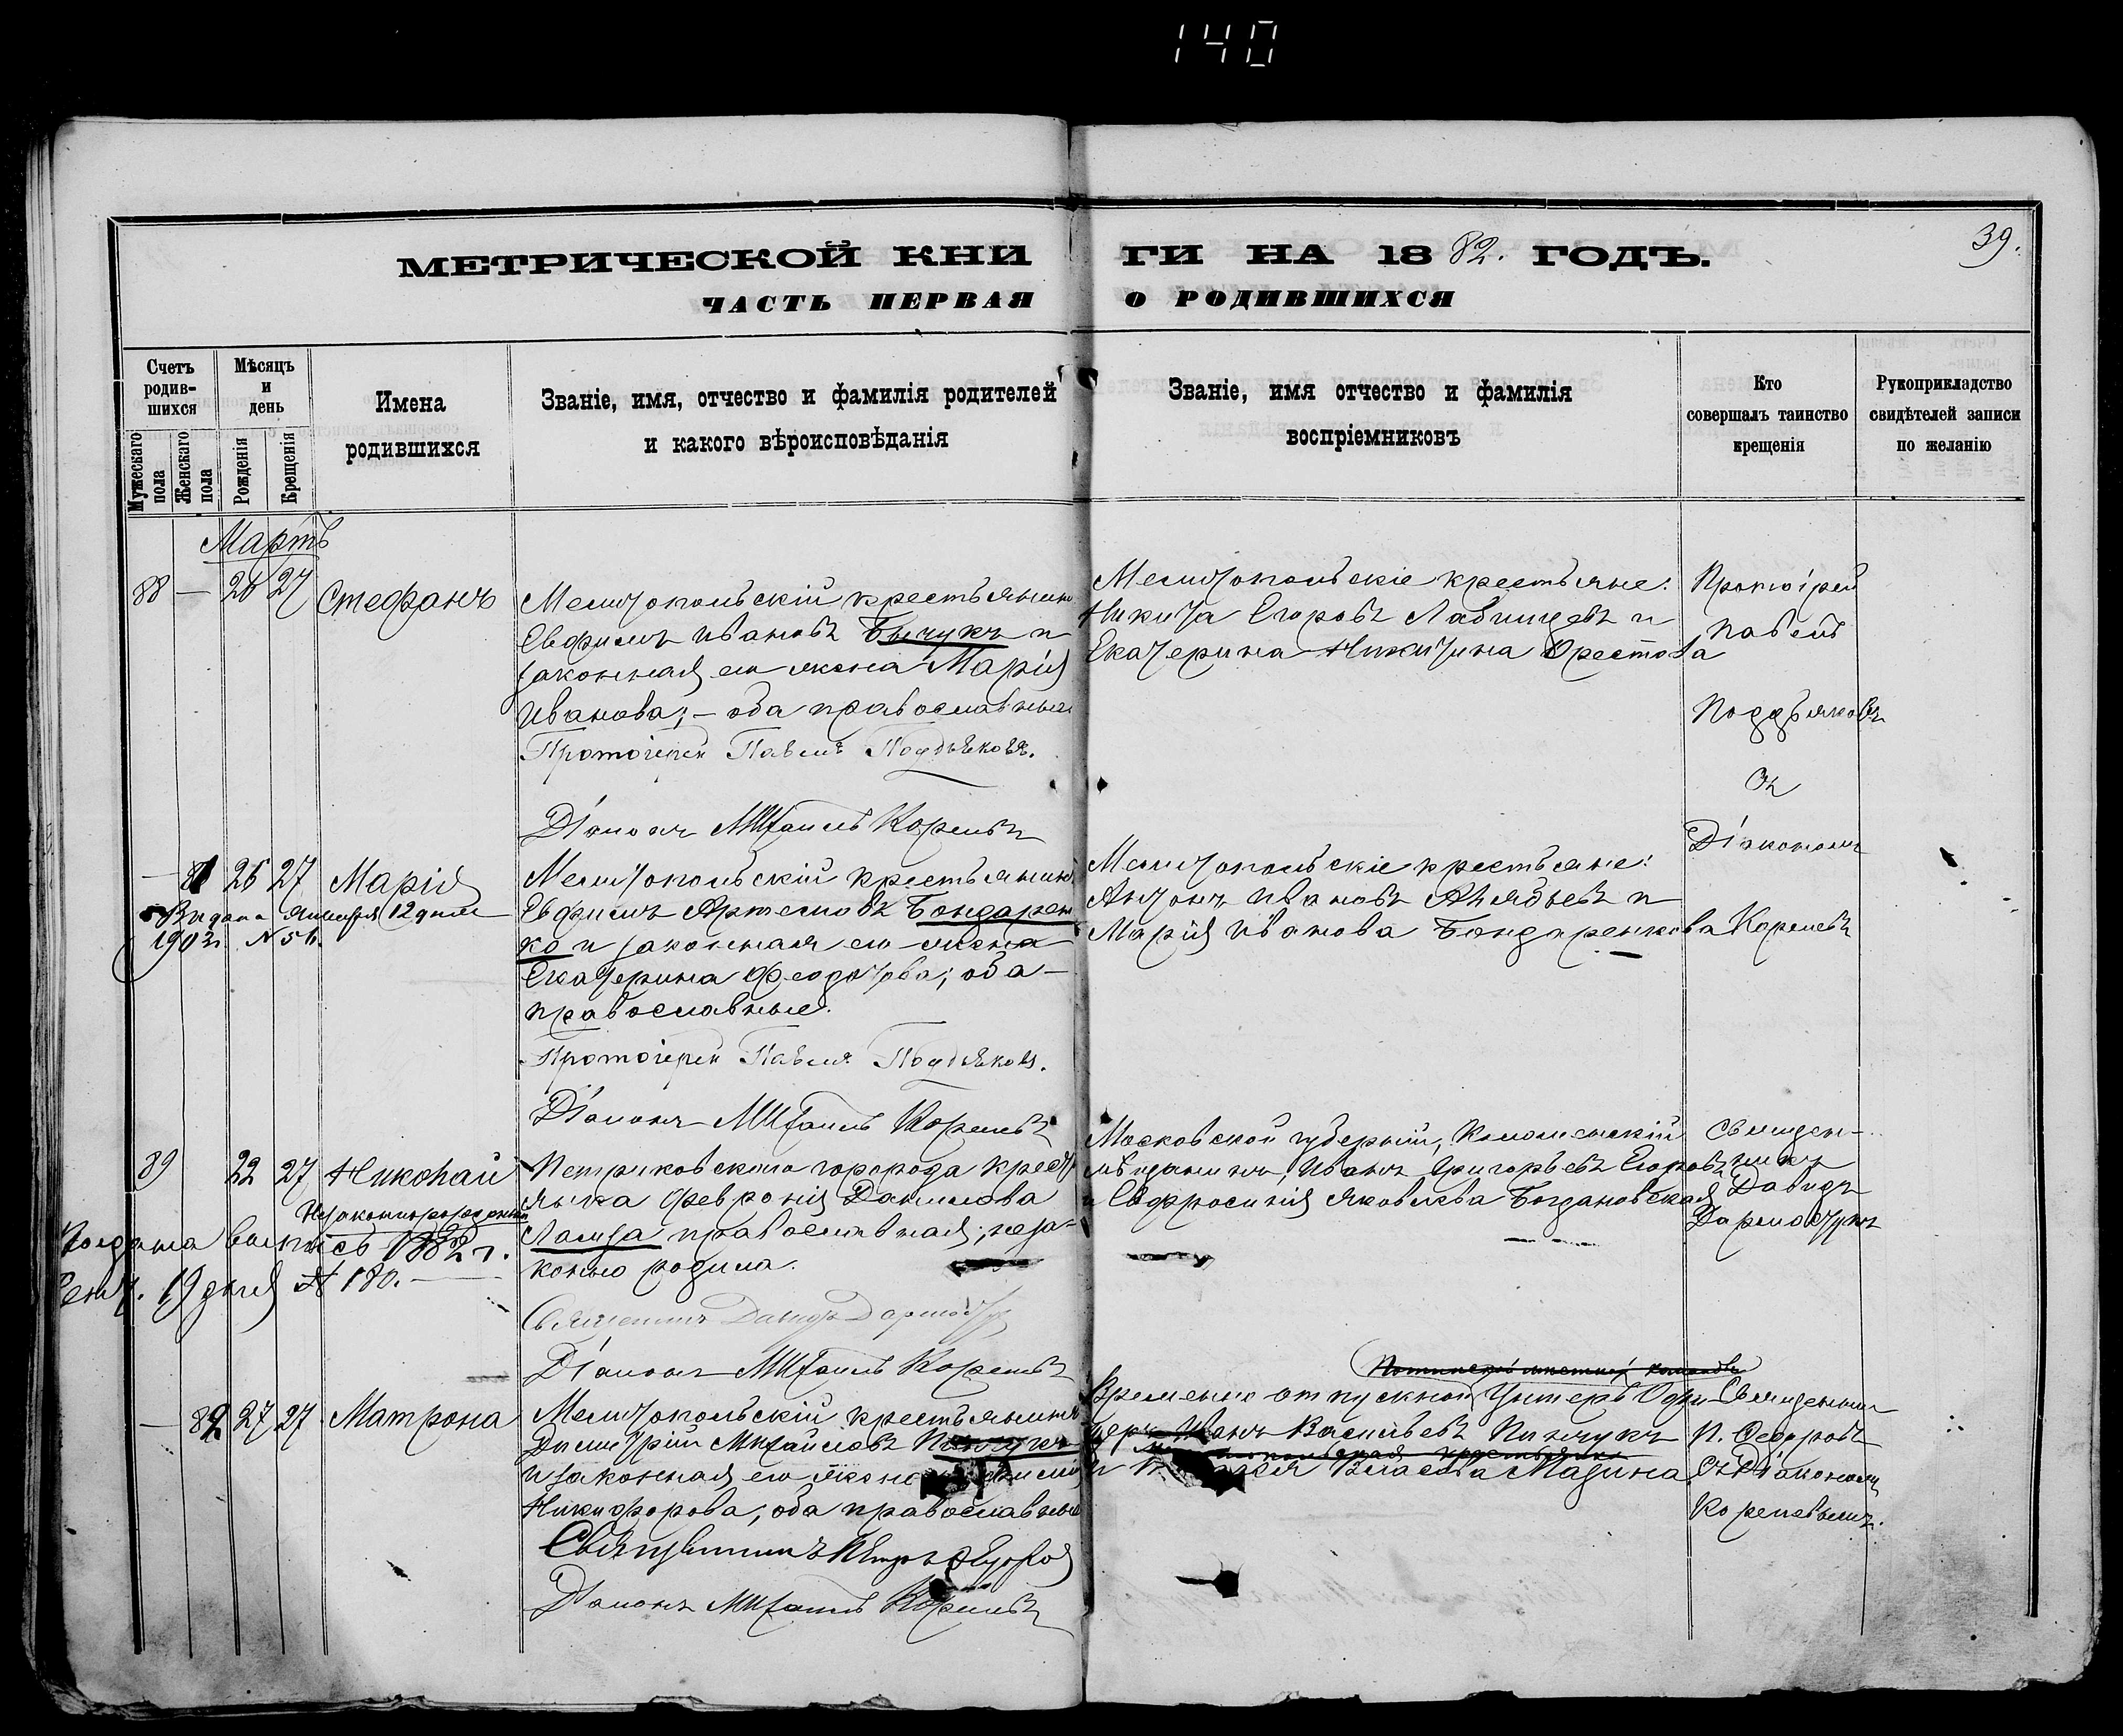 140
МЕТРИЧЕСКОЙ КНИГИ НА 1882. ГОДЪ.
39.
ЧАСТЬ ПЕРВАЯ О РОДИВШИХСЯ
Счетъ родив-шихся
Мужескаго пола
Женскаго пола
Мѣсяцъ и день
Рожденія
Крещенія
Имена родившихся
Званіе, имя, отчество и фамилія родителей
и какого вѣроисповѣданія
Званіе, имя отчество и фамилія
воспріемниковъ
Кто
совершалъ таинство
крещенія
Рукоприкладство
свидѣтелей записи
по желанію
Мартъ
88 — 26 27 Стефанъ
Мелитопольскій крестьянинъ
Евфимъ Ивановъ Бычукъ и
законная его жена Марія
Иванова; — оба православные
Протоіерей Павелъ Поддьяковъ.
Діаконъ Михаилъ Кореневъ
Мелитопольскіе крестьяне:
Никита Егоровъ Лабинцевъ и
Екатерина Никитина Орестова
Протоіерей
Павелъ
Поддьяковъ
съ
Діакономъ
Кореневъ
— 81 26 27 Марія
Выдана Января 12 дня
1903г. № 56.
Мелитопольскій крестьянинъ
Евфимъ Артемовъ Бондарен
ко и законная его жена
Екатерина Федотова; оба
православные.
Протоіерей Павелъ Поддьяковъ.
Діаконъ Михаилъ Кореневъ
Мелитопольскіе крестьяне:
Антонъ Ивановъ Алябьевъ и
Марія Иванова Бондаренкова
89 22 27 Николай
Незаконнорожденный
Выдана выпись 1882 г.
Сент. 19 дня № 180.
Петриковского города крест
янка Феврония Данилова
православная; неза-
конно родила.
Священникъ Давидъ
Діаконъ Михаилъ Кореневъ
Московской губерніи, Коломенскій
мѣщанинъ, Иванъ Григорьевъ Егоровъ
и Евфросинія Яковлева Богдановская
Священ-
никъ
Давидъ
— 82 27 27 Матрона
Мелитопольскій крестьянинъ
Димитрій Михайловъ
и законная его жена
Никифорова, оба православные
Священникъ Петръ Федоровъ
Діаконъ Михаилъ Кореневъ
Временно отпускной Унтеръ Офи
церъ Иванъ Васильевъ Пинчукъ
и Власова Мазина
Священникъ
П. Федоровъ
съ Діакономъ
Кореневымъ.